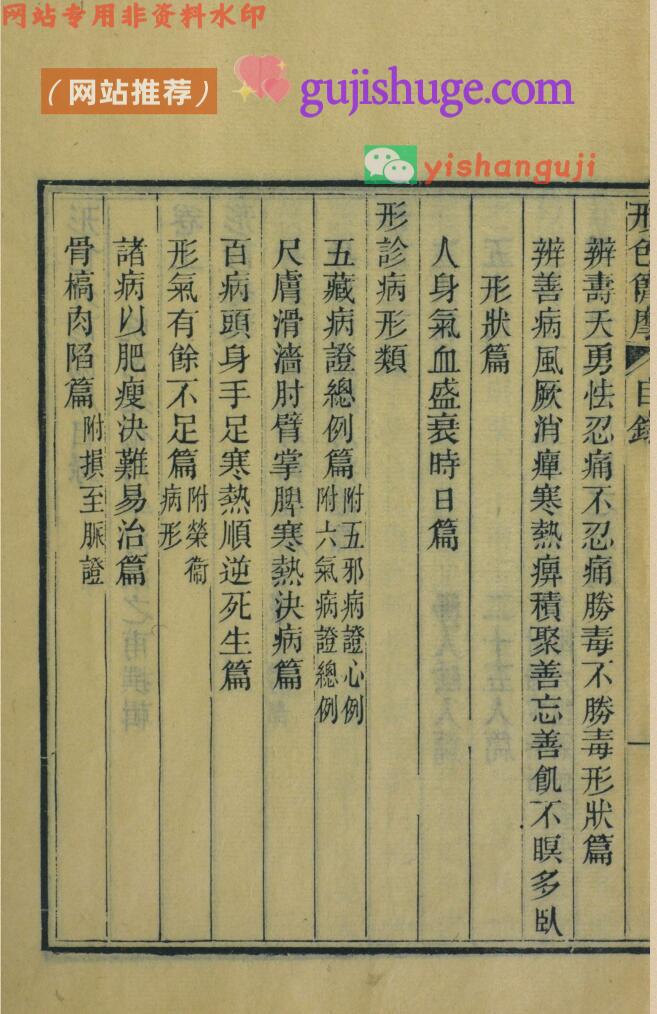 网站专用非资料水印
（网站推荐）
gujishuge.com
yishanguji
形色簡摩
目錄
一
辨壽夭勇怯忍痛不忍痛勝毒不勝毒形狀篇
辨善病風厥消癉寒熱痹積聚善忘善飢不瞑多臥
形狀篇
人身氣血盛衰時日篇
形診病形類
五藏病證總例篇附五邪病證心例
附六氣病證總例
尺膚滑濇肘臂掌脾寒熱決病篇
百病頭身手足寒熱順逆死生篇
形氣有餘不足篇附榮衞
病形
諸病以肥瘦決難易治篇
骨槁肉陷篇附損至脈證